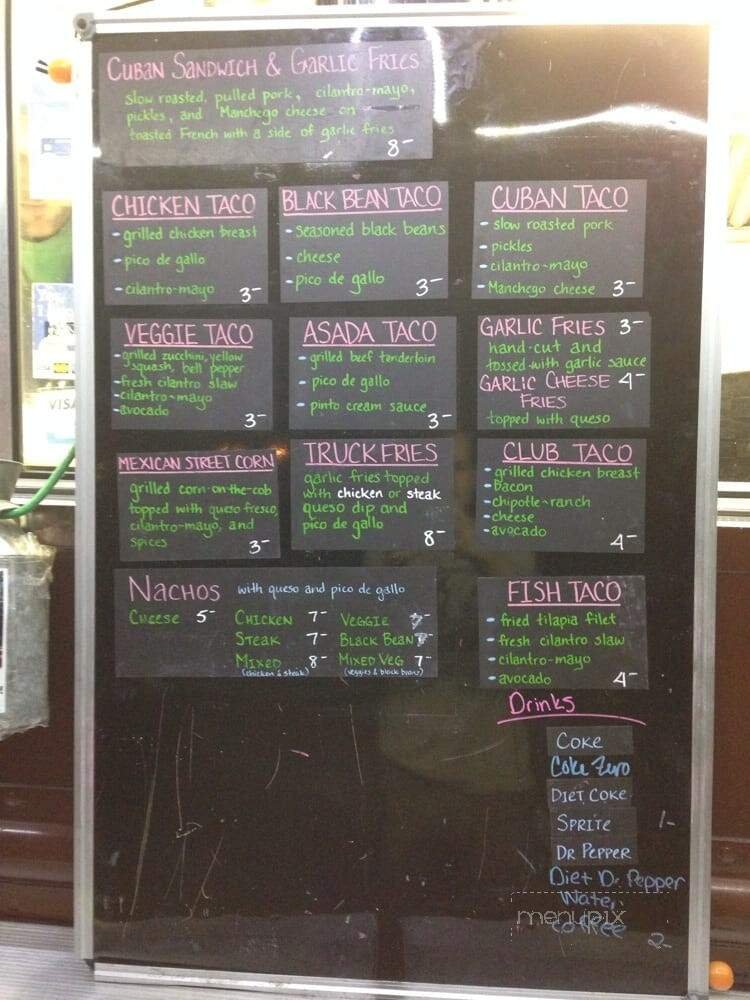 CUBAN SANDWICH & GARLIC FRIES
slow roasted, pulled pork, cilantro-mayo,
pickles, and Manchego cheese on
toasted French with a side of garlic fries
8-
CHICKEN TACO
- grilled chicken breast
- pico de gallo
- cilantro-mayo 3-
BLACK BEAN TACO
- seasoned black beans
- cheese
- pico de gallo 3-
CUBAN TACO
- slow roasted pork
- pickles
- cilantro-mayo
- Manchego cheese 3-
VEGGIE TACO
- grilled zucchini, yellow
squash, bell pepper
- fresh cilantro slaw
- cilantro-mayo
- avocado 3-
ASADA TACO
- grilled beef tenderloin
- pico de gallo
- pinto cream sauce 3-
GARLIC FRIES 3-
hand-cut and
tossed with garlic sauce
GARLIC CHEESE 4-
FRIES
topped with queso
MEXICAN STREET CORN
grilled corn-on-the-cob
topped with queso fresco,
cilantro-mayo, and
spices 3-
TRUCK FRIES
garlic fries topped
with chicken or steak
queso dip and
pico de gallo 8-
CLUB TACO
- grilled chicken breast
- Bacon
- chipotle-ranch
- cheese
- avocado 4-
NACHOS with queso and pico de gallo
CHEESE 5- CHICKEN 7- VEGGIE
STEAK 7- BLACK BEAN
MIXED 8- MIXED VEG 7-
(chicken & steak) (veggies & black beans)
FISH TACO
- fried tilapia filet
- fresh cilantro slaw
- cilantro-mayo
- avocado 4-
Drinks
COKE
Coke Zero
DIET COKE
SPRITE 1-
DR PEPPER
Diet Dr. Pepper
Water
menupix
coffee 2-
VISA